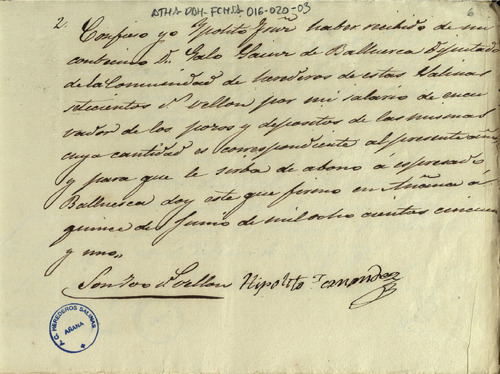 ATHA-DDH-FCHSA 016-020-03
6
2. Confieso yo Ypolito Frnz haber recibido de mi
convecino D. Galo Sainz de Balluerca Diputado
de la Comunidad de herederos de estas Salinas
setecientos rs vellon por mi salario de encu
vador de los pozos y depositos de las mismas
cuya cantidad es correspondiente al presente año
y para que le sirba de abono á espresado
Balluerca doy este que firmo en Añana á
quince de Junio de mil ocho cientos cincuen
y uno,,
Son 700 rs vellon Hipolito Fernandez
A.G. HEREDEROS SALINAS
AÑANA